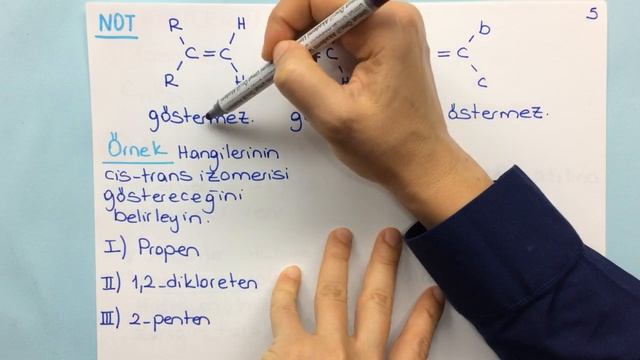 NOT
5
R H
C=C
R H
=C
H
b
=C
c
göstermez. g östermez.
Örnek Hangilerinin
cis-trans izomerisi
göstereceğini
belirleyin.
I) Propen
II) 1,2-dikloreten
III) 2-penten